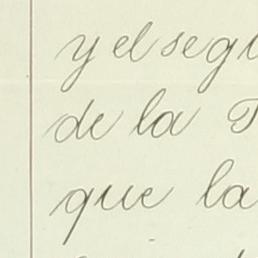 y el seg
de la
que la